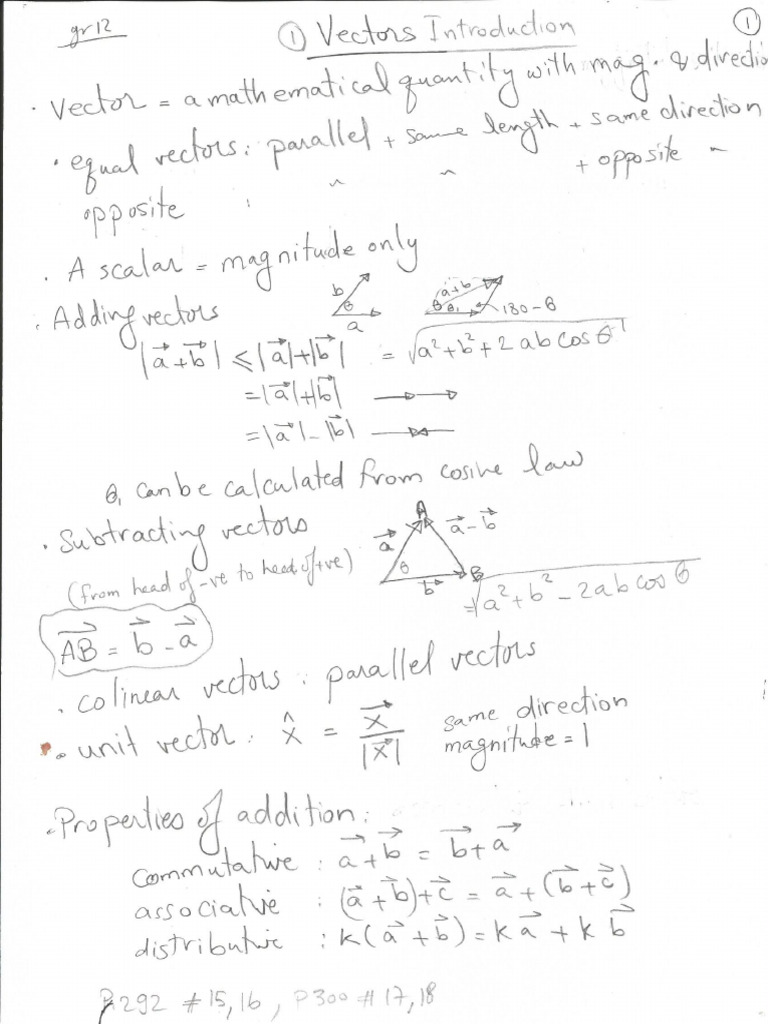 gr12
① Vectors Introduction ①
· Vector = a mathematical quantity with mag. & directio
· equal vectors: parallel + same length + same direction
opposite : " " + opposite "
· A scalar = magnitude only
· Adding vectors
b θ a
a+b θ θ₁ 180-θ
|a⃗+b⃗| ≤ |a⃗|+|b⃗| = √a²+b²+2ab cosθ
= |a⃗|+|b⃗|
= |a⃗|-|b⃗|
θ₁ can be calculated from cosine law
· Subtracting vectors
A a⃗ a⃗-b⃗ θ b⃗ B
(from head of -ve to head of +ve)
= √a²+b²-2ab cosθ
AB⃗ = b⃗ - a⃗
· colinear vectors : parallel vectors
· unit vector : x̂ = x⃗/|x⃗| same direction
magnitude = 1
· Properties of addition:
commutative : a⃗+b⃗ = b⃗+a⃗
associative : (a⃗+b⃗)+c⃗ = a⃗+(b⃗+c⃗)
distributive : k(a⃗+b⃗) = ka⃗ + kb⃗
P292 #15,16, P300 #17,18